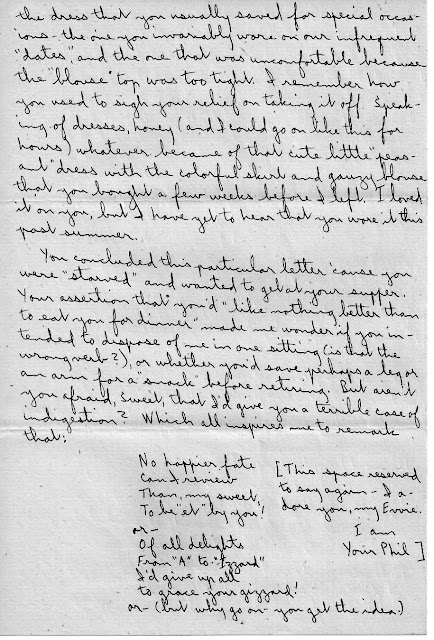 the dress that you usually saved for special occas-
ions - the one you invariably wore on our infrequent
"dates", and the one that was uncomfortable because
the "blouse" top was too tight. I remember how
you used to sigh your relief on taking it off. Speak-
ing of dresses, honey (and I could go on like this for
hours) whatever became of that cute little "peas-
ant" dress with the colorful skirt and gauzy blouse
that you bought a few weeks before I left. I loved
it on you, but I have yet to hear that you wore it this
past summer.
You concluded this particular letter 'cause you
were "starved" and wanted to get at your supper.
Your assertion that you'd "like nothing better than
to eat you for dinner" made me wonder if you in-
tended to dispose of me in one sitting (is that the
wrong verb?), or whether you'd save perhaps a leg or
an arm for a "snack" before retiring. But aren't
you afraid, Sweet, that I'd give you a terrible case of
indigestion? Which all inspires me to remark
that:
No happier fate
Can I review
Than, my sweet,
To be "et" by you!
or -
Of all delights
From "A" to "Izzard"
I'd give up all
to grace your gizzard!
or - (but why go on - you get the idea.)
[This space reserved
to say again - I a-
dore you, my Evvie.
I am
Your Phil]